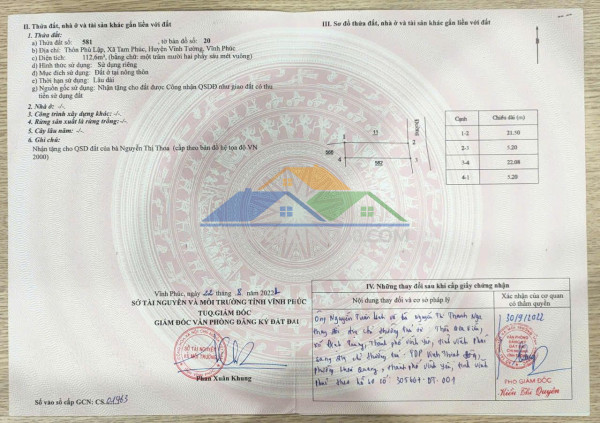 II. Thửa đất, nhà ở và tài sản khác gắn liền với đất
1. Thửa đất:
a) Thửa đất số: 581 , tờ bản đồ số: 20
b) Địa chỉ: Thôn Phú Lập, Xã Tam Phúc, Huyện Vĩnh Tường, Vĩnh Phúc
c) Diện tích: 112,6m², (bằng chữ: một trăm mười hai phẩy sáu mét vuông)
d) Hình thức sử dụng: Sử dụng riêng
đ) Mục đích sử dụng: Đất ở tại nông thôn
e) Thời hạn sử dụng: Lâu dài
g) Nguồn gốc sử dụng: Nhận tặng cho đất được Công nhận QSDĐ như giao đất có thu
tiền sử dụng đất
2. Nhà ở: -/-.
3. Công trình xây dựng khác: -/-.
4. Rừng sản xuất là rừng trồng: -/-.
5. Cây lâu năm: -/-.
6. Ghi chú:
Nhận tặng cho QSD đất của bà Nguyễn Thị Thoa (cấp theo bản đồ hệ tọa độ VN
2000)
Vĩnh Phúc, ngày 22 tháng 8 năm 2022
SỞ TÀI NGUYÊN VÀ MÔI TRƯỜNG TỈNH VĨNH PHÚC
TUQ.GIÁM ĐỐC
GIÁM ĐỐC VĂN PHÒNG ĐĂNG KÝ ĐẤT ĐAI
SỞ TÀI NGUYÊN
VÀ MÔI TRƯỜNG
Phan Xuân Khung
Số vào sổ cấp GCN: CS 01963
III. Sơ đồ thửa đất, nhà ở và tài sản khác gắn liền với đất
Đường
1
2
3
4
580
582
Cạnh Chiều dài (m)
1-2 21.50
2-3 5.20
3-4 22.08
4-1 5.20
.COM
IV. Những thay đổi sau khi cấp giấy chứng nhận
Nội dung thay đổi và cơ sở pháp lý
Xác nhận của cơ quan
có thẩm quyền
Ông Nguyễn Tuấn Linh và bà Nguyễn Thị Thanh Nga
thay đổi địa chỉ thường trú từ: Thôn
xã Định Trung, Thành phố Vĩnh Yên, tỉnh Vĩnh Phúc
sang địa chỉ thường trú: TDP Vinh Thịnh Đông,
Phường Khai Quang, Thành phố Vĩnh Yên, tỉnh Vĩnh
Phúc theo hồ sơ số: 305469-DT-001
30/9/2022
PHÓ GIÁM ĐỐC
Quyên